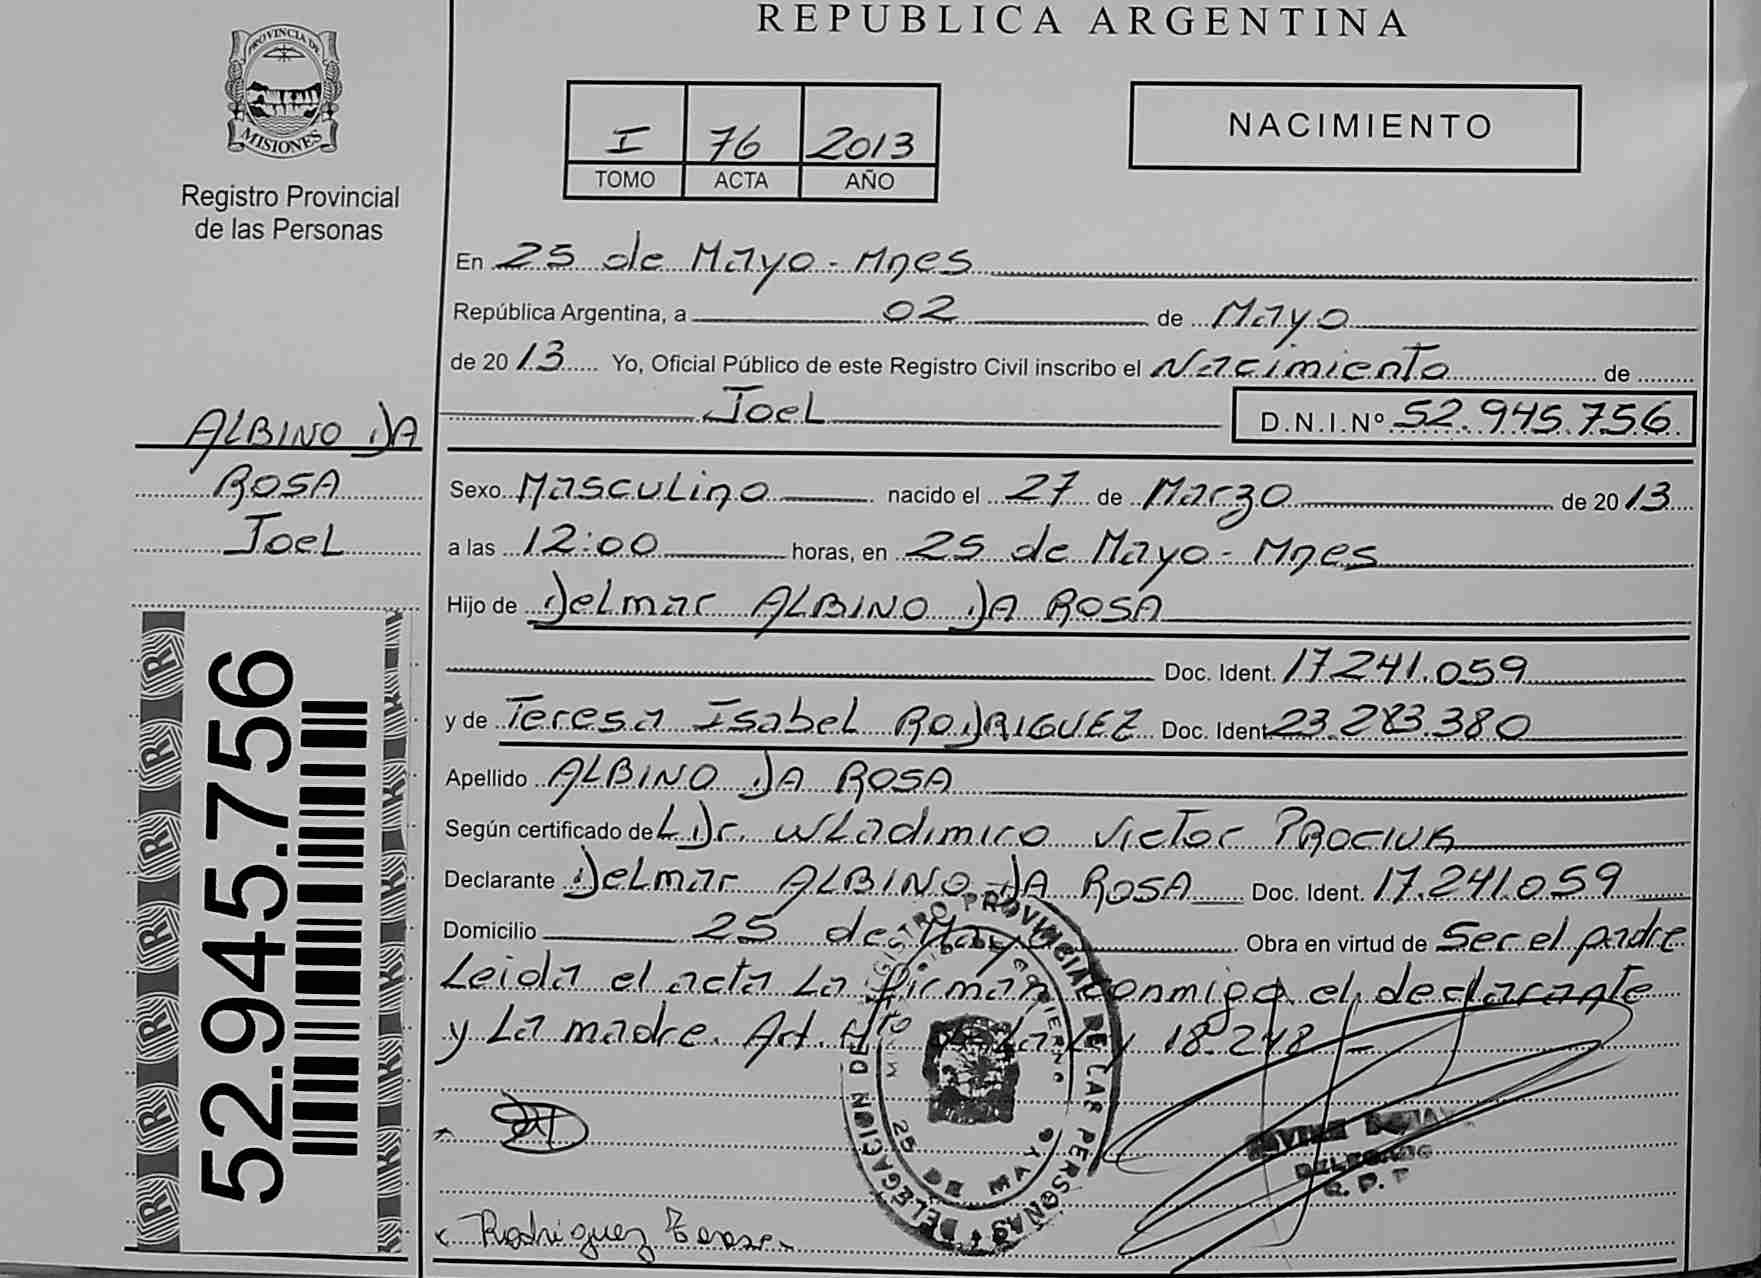 REPUBLICA ARGENTINA
PROVINCIA DE
MISIONES
Registro Provincial
de las Personas
I 76 2013
TOMO ACTA AÑO
NACIMIENTO
En 25 de Mayo - Mnes
República Argentina, a 02 de Mayo
de 2013 Yo, Oficial Público de este Registro Civil inscribo el Nacimiento de
Joel D.N.I.Nº 52.945.756
ALBINO DA
ROSA
Joel
Sexo Masculino nacido el 27 de Marzo de 2013
a las 12:00 horas, en 25 de Mayo - Mnes
Hijo de Delmar ALBINO DA ROSA
Doc. Ident. 17.241.059
y de Teresa Isabel RODRIGUEZ Doc. Ident 23.283.380
Apellido ALBINO DA ROSA
Según certificado de L Dr. Wladimiro Victor PROCIUK
Declarante Delmar ALBINO DA ROSA Doc. Ident. 17.241.059
Domicilio 25 de Mayo Obra en virtud de Ser el padre
Leida el acta La firman conmigo el declarante
y La madre. Art. 4to de La Ley 18.248 -
52.945.756
DELEGACION DEL REGISTRO PROVINCIAL DE LAS PERSONAS
25 DE MAYO
DELEGADO
R. P. P
Rodriguez Teresa